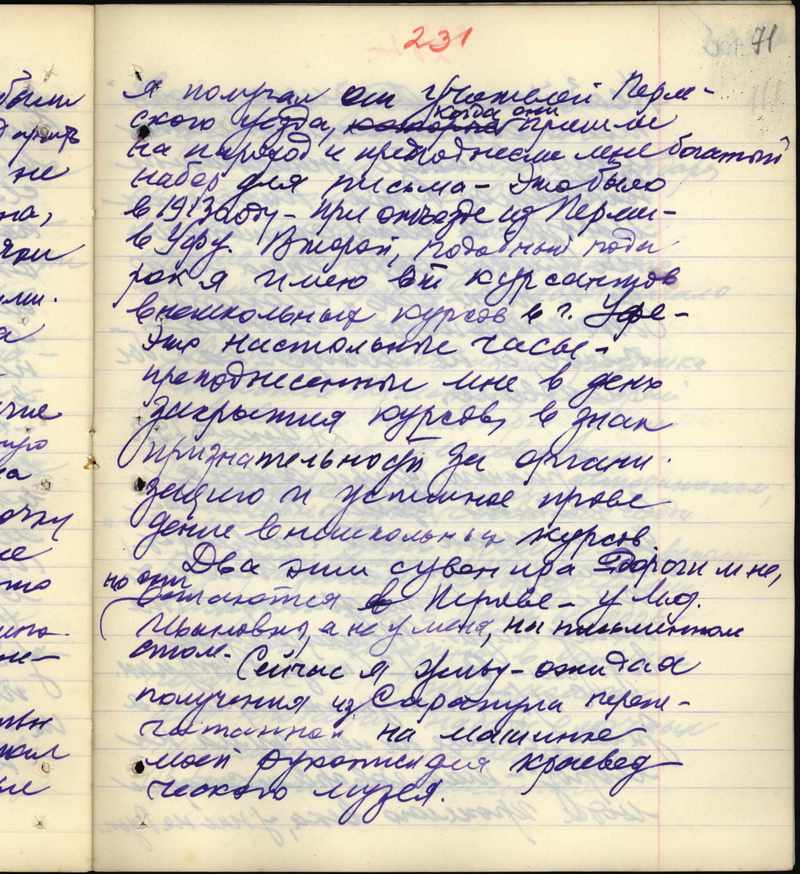 231
71
Я получил от учителей Перм-
ского уезда, когда они пришли
на пароход и преподнесли мне богатый
набор для письма - это было
в 1913 году - при отъезде из Перми -
в Уфу. Второй, подобный пода
рок я имею от курсантов
внешкольных курсов в г. Уфе -
это настольные часы -
преподнесенные мне в день
закрытия курсов, в знак
признательности за органи
зацию и успешное прове
дение внешкольных курсов.
Два эти сувенира дороги мне,
но они
остаются в Перми - у
а не у меня, на письменном
столе.
Сейчас я живу - ожидая
получения из Сарапула перепе-
чатанной на машинке
моей рукописи для краевед
ческого музея.